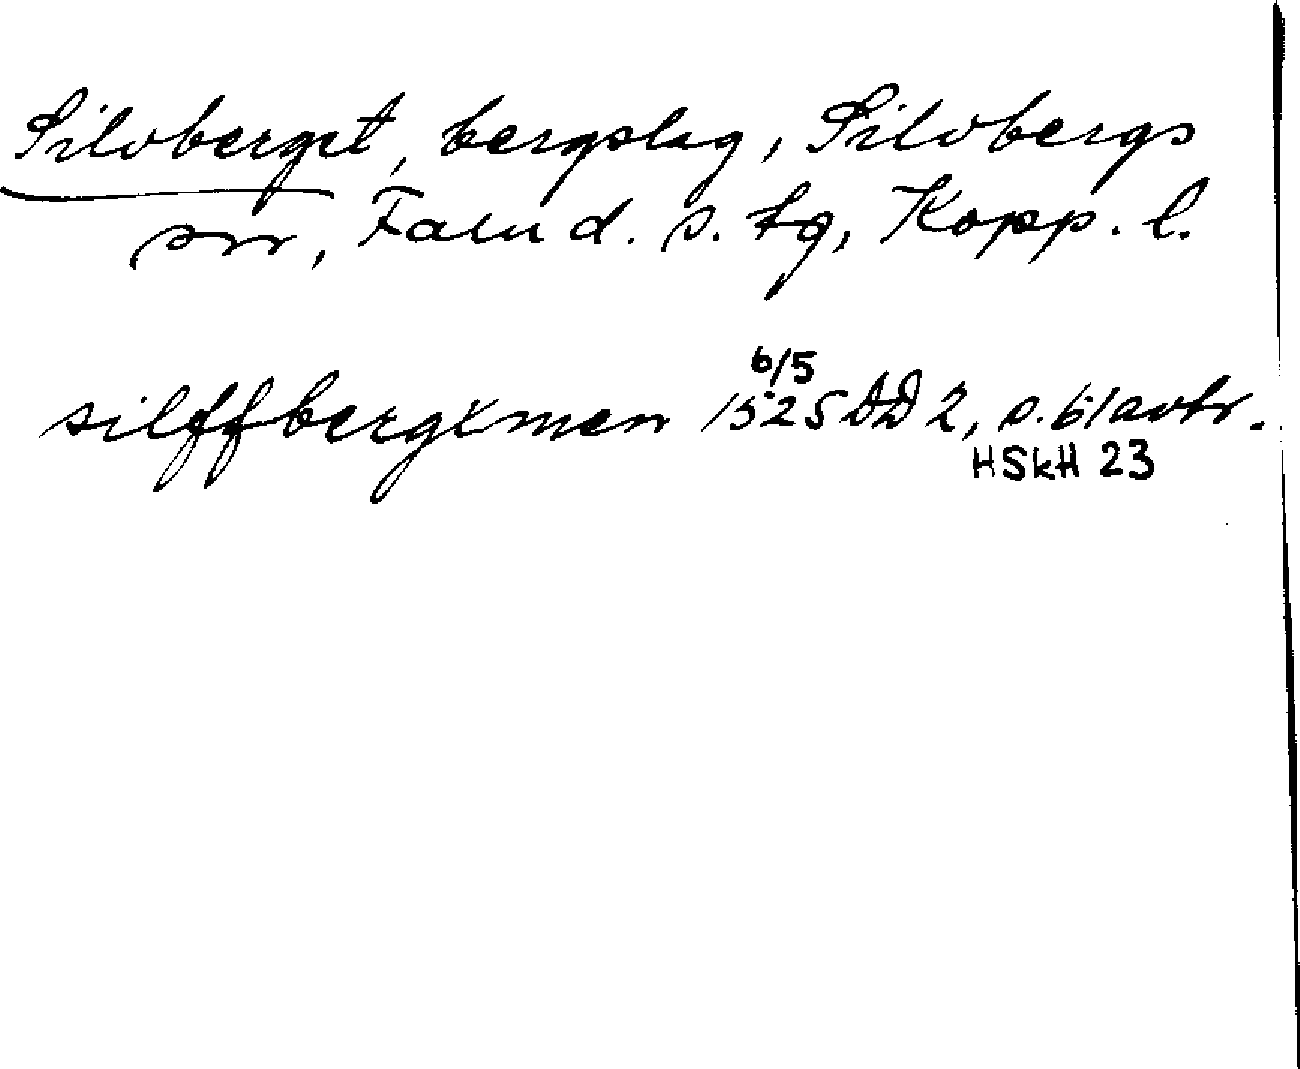 Silvberget, bergslag, Silvbergs
sn, Falu d. s. tg, Kopp. l.
6/5
silffbergxmen 1525 DD 2, s. 61 avtr.
HSkH 23